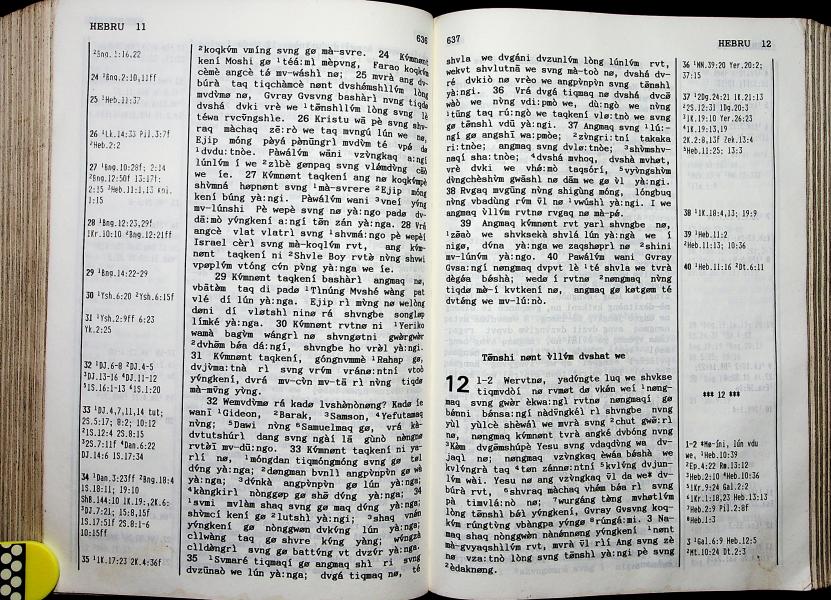 HEBRU 11
636
²Bng. 1:16.22
24 ¹Bng.2:10,11ff
25 ¹Heb.11:37
26 ¹Lk.14:33 Pil.3:7f
²Heb.2:2
27 ¹Bng.10:28f; 2:14
²Bng.12:50f 13:17f;
2:15 ³Heb.11:1,13 Kni.
1:15
28 ¹Bng.12:23,29f
1Kr.10:10 ²Bng.12:21ff
29 ¹Bng.14:22-29
30 ¹Ysh.6:20 ²Ysh.6:15f
31 ¹Ysh.2:9ff 6:23
Yk.2:25
32 ¹DJ.6-8 ²DJ.4-5
³DJ.13-16 ⁴DJ.11-12
⁵1S.16:1-13 ⁶1S.1:20
33 ¹DJ.4,7,11,14 tut;
2S.5:17; 8:2; 10:12
²1S.12:4 2S.8:15
³2S.7:11f ⁴Dan.6:22
DJ.14:6 1S.17:34
34 ¹Dan.3:23ff ²Bng.18:4
1S.18:11; 19:10
ShB.144:10 1K.19:,2K.6:
³DJ.7:21; 15:8,15f
1S.17:51f 2S.8:1-6
10:15ff
35 ¹1K.17:23 2K.4:36f
²koqkv́m vmíng svng gø mà-svre. 24 Kv́mnønt
kení Moshi gø ¹téé:mì mèpvng, Farao koqkv́m
cèmè angcè té mv-wáshì nø; 25 mvrà ang dv-
búrà taq tiqchàmcè nønt dvshǿmshllv́m lòng
mvdv̀mø nø, Gvray Gvsvng bashàrì nvng tiqdø
dvshá dvkì vrè we ¹tǿnshllv́m lòng svng lè
téwa rvcv̀ngshle. 26 Kristu wā pè svng shv-
raq màchaq zē:rò we taq mvngú lún we nø,
Ejip móng pèyá pénùngrì mvdv̀m té vpá dø
¹dvdu:tnòe. Pàwálv́m wāni vzv̀ngkaq a:ngí
lúnlv́m í we ²zìbè gønpaq svng vlǿmdv̀ng cāò
we íe. 27 Kv́mnønt taqkení ang nø koqkv́mpè
shv̀mná høpnønt svng ¹mà-svrere ²Ejip móng
kení búng yà:ngì. Pàwálv́m wāni ³vneí yíng
mv-lúnshì Pè wepè svng nø yà:ngo padø dv-
dā:mò yíngkení a:ngí tēn zán yà:nga. 28 Vrá
angcè vlat vlatrì svng ¹shvmá:ngo pè wepèí
Israel cèrì svng mà-koqlv́m rvt, ang kv́m-
nønt taqkení ni ²Shvle Boy rvtè nv̀ng shvwì
vpøplv́m vtóng cv́n pv̀ng yà:nga we íe.
29 Kv́mnønt taqkení bashàrì angmaq nø,
vbātèm taq di padø ¹Tlnúng Mvshé wàng pat
vlé dí lún yà:nga. Ejip rì mìng nø welòng
døni dí vløtshì ninø rá shvngbe songløp
límké yà:ngì. 30 Kv́mnønt rvtnø ni ¹Yeriko
wamà bagv̀m wángrì nø shvngøtni gwèrgwèr
²dvhøm béá dá:ngí, shvngbe ho vrèl yà:ngì.
31 Kv́mnønt taqkení, góngnvmmè ¹Rahap gø,
dvjv̀ma:tnà rì svng vrv́m vráná:ntní vtoò
yíngkení, dvrá mv-cv̀n mv-tā rì nv̀ng tiqdø
mà-mv́ng yìng.
32 Wemvdv̀mø rá kadø lvshènònøng? Kadø íe
waní ¹Gideon, ²Barak, ³Samson, ⁴Yefutamaq
nv̀ng; ⁵Dawi nv̀ng ⁶Samuelmaq gø, vrá kà-
dvtutshúrì dang svng ngàí là gúnò nèngnø
rvtèí mv-dū:ngo. 33 Kv́mnønt taqkení ni ya-
rlí nø, ¹móngdan tiqmóngmóng svng gø tøl
dv́ng yà:nga; ²døngman bvnlì angpv̀npv̀n gø wā
yà:nga; ³dv́nkà angpv̀npv̀n gø lún yà:nga;
⁴kàngkirì nònggøp gø shē dv́ng yà:nga; 34
¹svmi mvlàm shaq svng gø maq dv́ng yà:nga;
shv̀mcì kení gø ²lutshì yà:ngì; ³shaq wā
yíngkení gø nònggwøm dvkv́ng lún yà:nga;
cllwàng taq gø shvre kv́ng yàng; wv̀ngzà
clldàngrì svng gø battv́ng vt dvzv́r yà:nga.
35 ¹Svmaré tiqmaqí gø angmaq shì rì svng
dvzūnaò we lún yà:nga; dvgá tiqmaq nø, té
637
HEBRU 12
shvla we dvgánì dvzunlv́m lòng lúnlv́m rvt,
wekvt shvlutnà we svng mà-toò nø, dvshá dv-
ré dvkìò nø vrèo we angpv̀npv̀n svng tǿnshì
yà:ngì. 36 Vrá dvgá tiqmaq nø dvshá dvcā
wàò we nv̀ng vdi:pmò we, dù:ngò we nv̀ng
¹tūng taq rú:ngò we taqkení vlø:tnò we svng
gø tǿnshì vdū yà:ngì. 37 Angmaq svng ¹lú:-
ngí gø angshī wa:pmòe; ²zv̀ngri:tni takaka
ri:tnòe; angmaq svng dvlø:tnòe; ³shv̀mshv-
naqí sha:tnòe; ⁴dvshá mvhoq, dvshà mvhøt,
vrè dvkì we vhǿ:mò taqsórí, ⁵vyv̀ngshv̀m
dv̀ngchèèshv̀m gwāshì nø dām we gø v̄l yà:ngì.
38 Rvgaq mvgūng nv̀ng shìgùng móng, lòngbuq
nv̀ng vbadùng rv́m v̄l nø ¹vwúshì yà:ngì. I we
angmaq v̀llv́m rvtnø rvgaq nø mà-pé.
39 Angmaq kv́mnønt rvt yarì shvngbe nø,
¹zèaò we shvksekà shvlá lún yà:ngà we í
nigø, dv́na yà:nga we zaqshøprì nø ²shini
mv-lúnv́m yà:ngì. 40 Pawálv́m wani Gvray
Gvsa:ngí nøngmaq dvpvt lè ¹té shvla we tvrà
dègéa báshà; wedø í rvtnø ²nøngmaq nv̀ng
tiqdø mè-í kvtkení nø, angmaq gø køtgøm té
dvtǿng we mv-lú:nò.
Tǿnshì nønt v̀llv́m dvshat we
12 1-2 Wervtnø, yadv̀ngte luq we shvkse
tiqmvdòí nø rvmøt dø vkán weí ¹nøng-
maq svng gwǿr èkwa:ngì rvtnø nøngmaqí gø
bǿnnì bánsa:ngì nàdv̀ngkēl rì shvngbe nv̀ng
yùl yùlcè shèwál we mvrà svng ²chut gwē:rì
nø, nøngmaq kv́mnønt tvrà angké dvbóng nvng
³Kǿm dvgǿmshúpè Yesu svng vdaqdv̀ng wa dv-
jaqì nø; nøngmaq vzv̀ngkaq èwáà báshà we
kvlv́ngrà taq ⁴tøn zánnø:ntní ⁵kvlv́ng dvjun-
lv́m wàì. Yesu nø ang vzv̀ngkaq v̄l dá we⁶ dv-
būrà rvt, ⁵shvraq màchaq vhǿm béa rì svng
pà timvlá:nò nø; ⁷wurgáng tǿng mvhøtlv́m
lòng tǿnshì béì yíngkení, Gvray Gvsvng koq-
kv́m rúngtv̀ng vbàngpa yíngø ⁸rúngá:mì. 3 Na-
maq shaq nònggwèn nànǿmnøng yíngkení ¹nønt
mà-gvyaqshllv́m rvt, mvrà v̄l rlí Ang svng zè
nø vza:tnò lòng svng tǿnshì yà:ngì pè svng
²èdaknøng.
36 ¹HN.39:20 Yer.20:2;
37:15
37 ¹2Dg.24:21 1K.21:13
²2S.12:31 1Dg.20:3
³1K.19:10 Yer.26:23
⁴1K.19:13,19
2K.2:8,13f Zek.13:4
⁵Heb.11:25; 13:3
38 ¹1K.18:4,13; 19:9
39 ¹Heb.11:2
²Heb.11:13; 10:36
40 ¹Heb.11:16 ²Dt.6:11
*** 12 ***
1-2 ªMø-íni, lún vdu
we, ¹Heb.10:39
²Ep.4:22 Rm.13:12
³Heb.2:10 ⁴Heb.10:36
⁵1Kr.9:24 Gal.2:2
⁶1Kr.1:18,23 Heb.13:13
⁷Heb.2:9 Pil.2:8f
⁸Heb.1:3
3 ¹Gal.6:9 Heb.12:5
²Mt.10:24 Dt.2:3